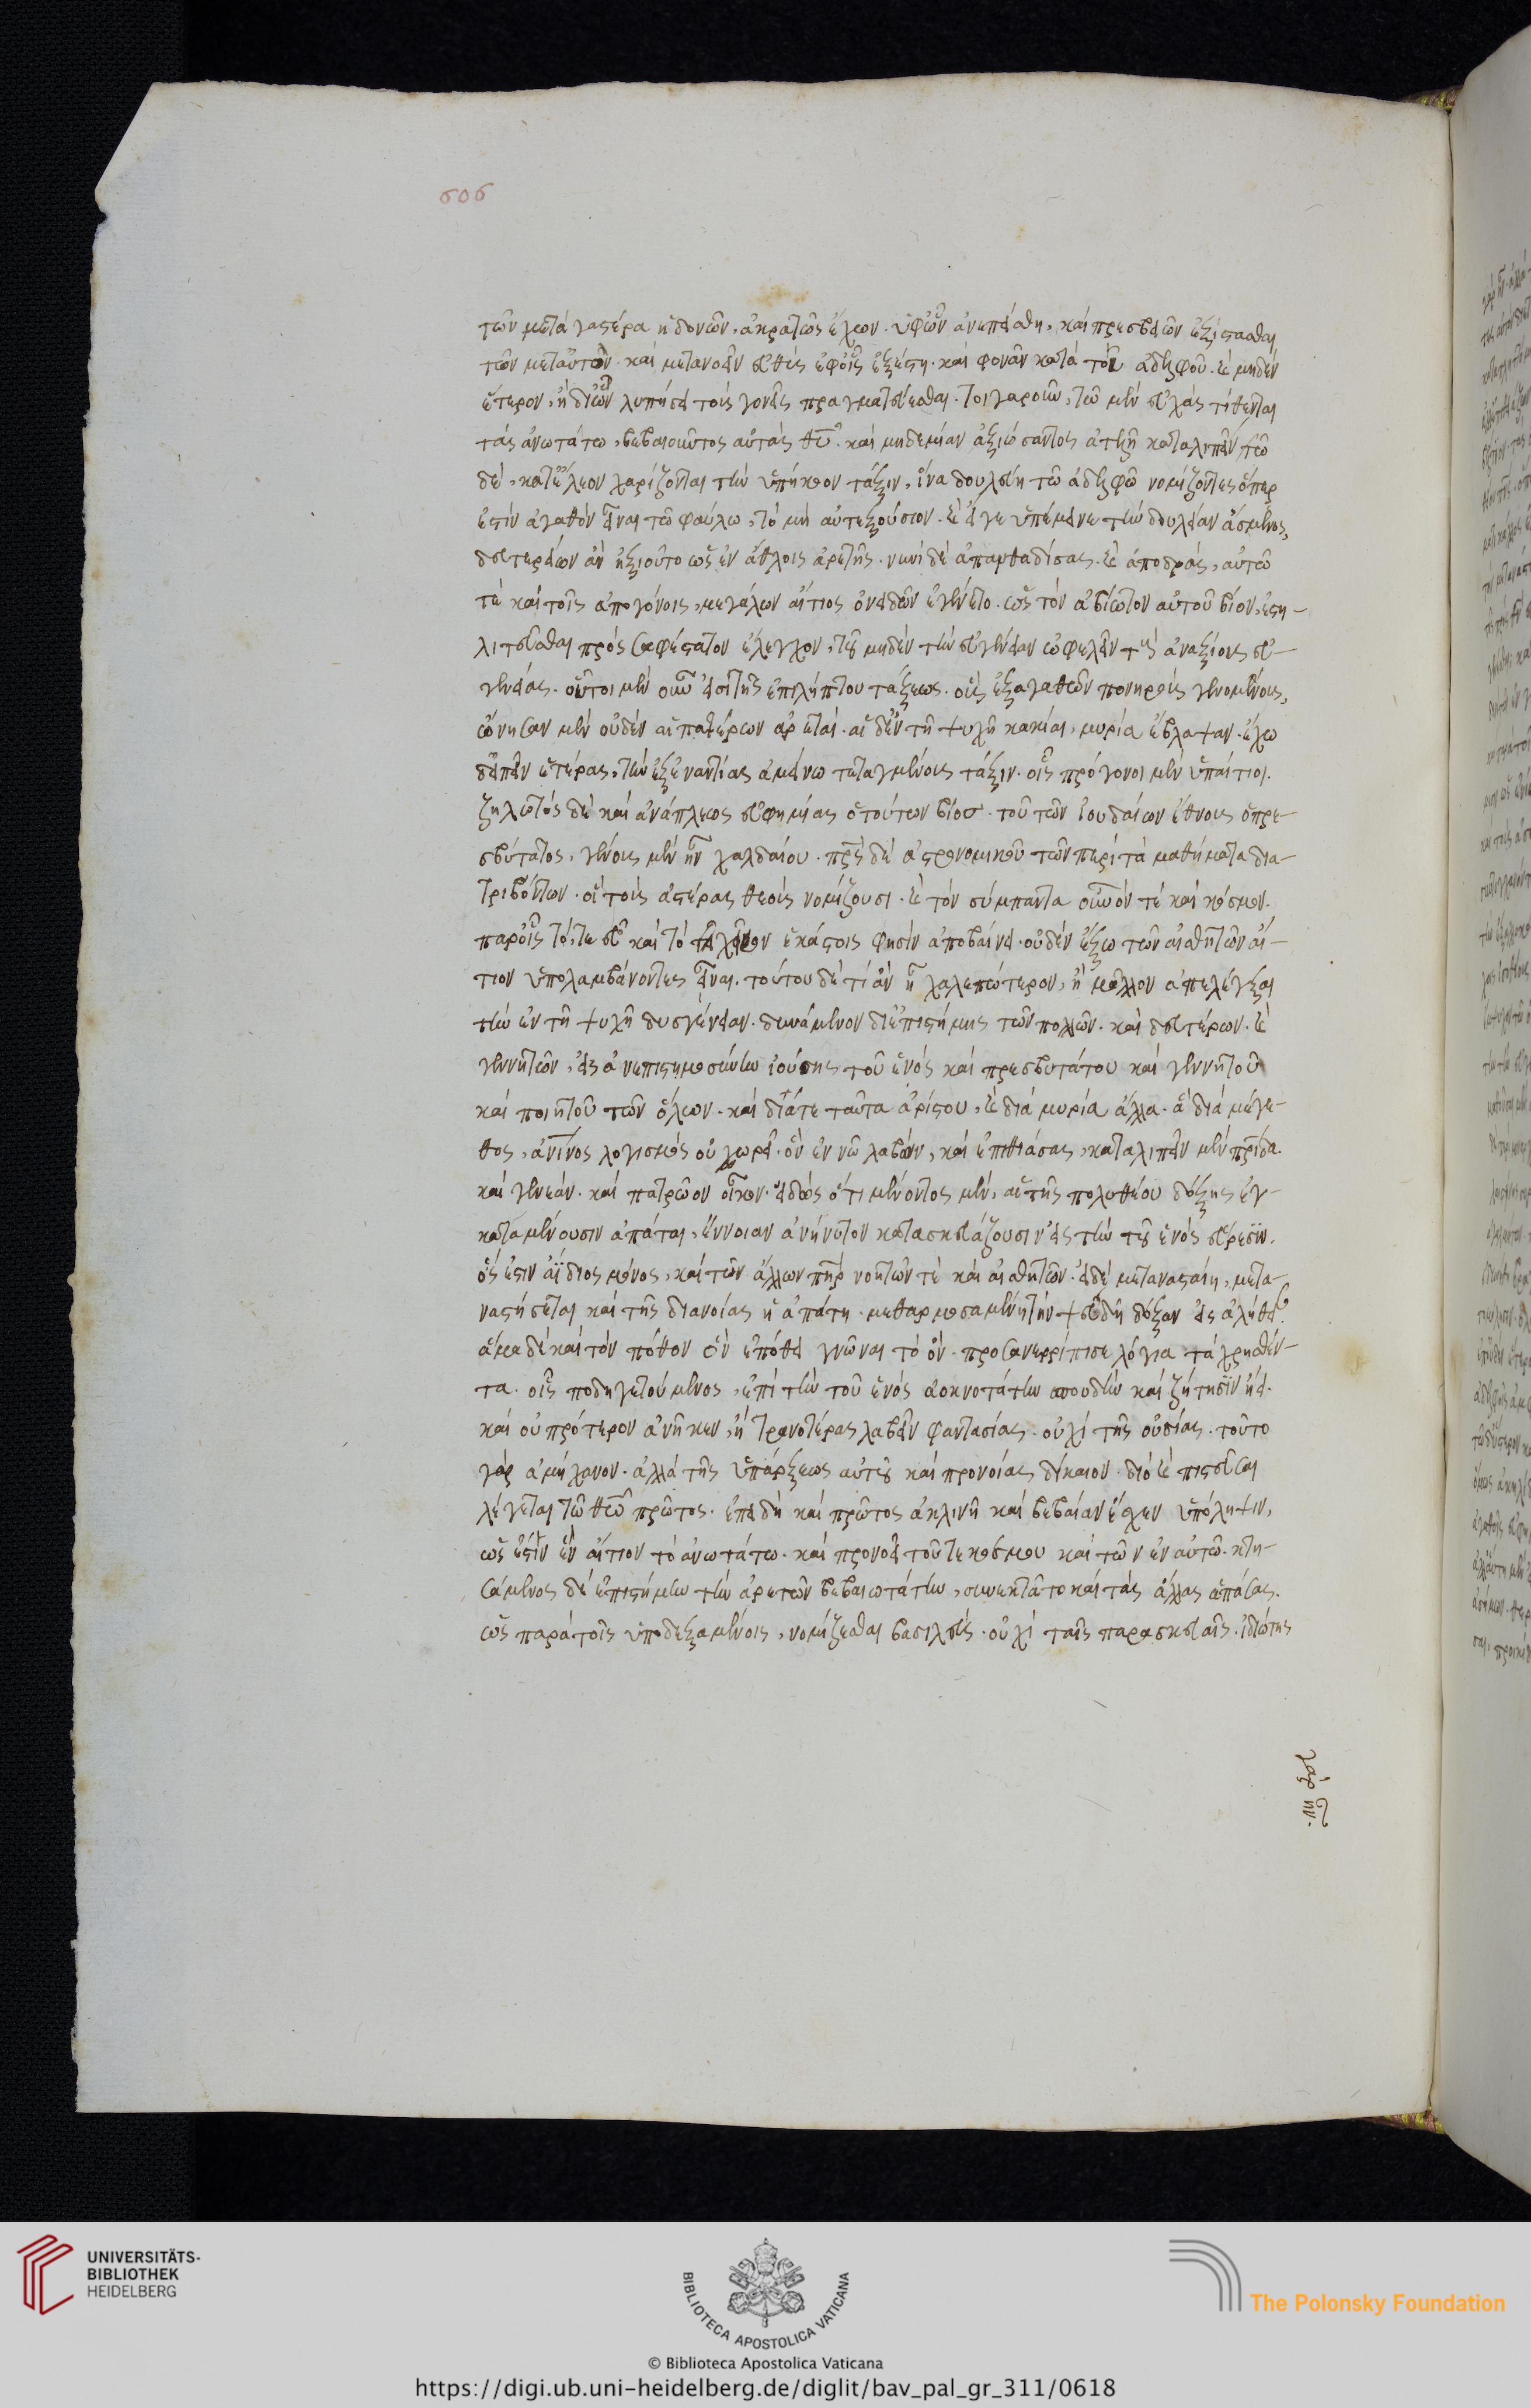 606
τῶν μετὰ γαστέρα ἡδονῶν, ἀκρατῶς ἔχων. ὑφ' ὧν ἀνεπείσθη, καὶ πρεσβείων ἐξίστασθαι
τῶν μετ' αὐτὸν. καὶ μετανοεῖν εὐθὺς ἐφ' οἷς ἐξέστη. καὶ φονᾶν κατὰ τοῦ ἀδελφοῦ. καὶ μηδὲν
ἕτερον, ἢ δι' ὧν λυπήσει τοὺς γονεῖς πραγματεύεσθαι. τοιγαροῦν, τῶ μὲν εὐχὰς τίθενται
τὰς ἀνωτάτω, βεβαιοῦντος αὐτὰς θυ. καὶ μηδεμίαν ἀξιώσαντος ἀτελῆ καταλιπεῖν, τῶ
δὲ, κατ' ἔλεον χαρίζονται τὴν ὑπήκοον τάξιν, ἵνα δουλεύη τῶ ἀδελφῶ νομίζοντες ὅπερ
ἐστὶν ἀγαθὸν εἶναι τῶ φαύλω, τὸ μὴ αὐτεξούσιον. καὶ εἴγε ὑπέμεινε τὴν δουλείαν ἄσμενος,
δευτερείων ἂν ἠξιοῦτο ὡς ἐν ἄθλοις ἀρετῆς. νυνὶ δὲ ἀπαυθαδίσας. καὶ ἀποδρὰς, αὐτῶ
τὲ καὶ τοῖς ἀπογόνοις, μεγάλων αἴτιος ὀνειδῶν ἐγένετο. ὡς τὸν ἀβίωτον αὐτοῦ βίον, ἐστη-
λιτεῦσθαι πρὸς σαφέστατον ἔλεγχον, τοῦ μηδὲν τὴν εὐγένειαν ὠφελεῖν τοὺς ἀναξίους εὐ-
γενείας. οὗτοι μὲν οὖν εἰσὶ τῆς ἐπιλήπτου τάξεως. οὓς ἐξ ἀγαθῶν πονηροὺς γενομένους,
ὤνησαν μὲν οὐδὲν αἱ πατέρων ἀρεταί. αἱ δ' ἐν τῆ ψυχῆ κακίαι, μυρία ἔβλαψαν. ἔχω
δ' εἰπεῖν ἑτέρας, τὴν ἐξ ἐναντίας ἀμείνω τεταγμένους τάξιν. οἷς πρόγονοι μὲν ὑπαίτιοι.
ζηλωτὸς δὲ καὶ ἀνάπλεως εὐφημίας ὁ τούτων βίος. τοῦ τῶν ἰουδαίων ἔθνους ὁ πρε-
σβύτατος, γένους μὲν ἦν χαλδαίου. πρς δὲ ἀστρονομικοῦ τῶν περὶ τὰ μαθήματα δια-
τριβόντων. οἳ τοὺς ἀστέρας θεοὺς νομίζουσι. καὶ τὸν σύμπαντα οὐνόν τὲ καὶ κόσμον.
παρ' οὓς τό, τε εὖ καὶ τὸ χεῖρον ἑκάστοις φησὶν ἀποβαίνει. οὐδὲν ἔξω τῶν αἰσθητῶν αἴ-
τιον ὑπολαμβάνοντες εἶναι. τούτου δὲ τί ἂν ἦ χαλεπώτερον, ἢ μᾶλλον ἀπελέγξαι
τὴν ἐν τῆ ψυχῆ δυσγένειαν. δυνάμενον δι' ἐπιστήμης τῶν πολλῶν. καὶ δευτέρων. καὶ
γεννητῶν, εἰς ἀνεπιστημοσύνην ἰούσης τοῦ ἑνὸς καὶ πρεσβυτάτου καὶ γεννητοῦ
καὶ ποιητοῦ τῶν ὅλων. καὶ διά τε ταῦτα ἀρίστου, καὶ διὰ μυρία ἄλλα. ἃ διὰ μέγε-
θος, ἀν΄ινος λογισμὸς οὐ χωρεῖ. ὧν ἐν νῶ λαβὼν, καὶ ἐπιθειάσας, καταλιπεῖν μὲν πρίδα.
καὶ γενεὰν. καὶ πατρῶον οἶκον. εἰδὼς ὅτι μένοντος μὲν, αἱ τῆς πολυθέου δόξης ἐγ-
καταμένουσιν ἀπάται, ἔννοιαν ἀνήνυτον κατασκευάζουσιν εἰς τὴν τοῦ ἑνὸς εὕρεσιν.
ὅς ἐστιν ἀΐδιος μόνος, καὶ τῶν ἄλλων πηρ νοητῶν τὲ καὶ αἰσθητῶν. εἰ δὲ μεταναστείη, μετα-
ναστήσεται καὶ τῆς διανοίας ἡ ἀπάτη. μεθαρμοσαμένη τὴν ψευδῆ δόξαν εἰς ἀλήθειαν.
ἅμα δὲ καὶ τὸν πόθον ὃν ἐπόθει γνῶναι τὸ ὂν. προσανερρίπισε λόγια τὰ χρησθέν-
τα. οἷς ποδηγετούμενος, ἐπὶ τὴν τοῦ ἑνὸς ἀοκνοτάτην σπουδὴν καὶ ζήτησιν ἤει.
καὶ οὐ πρότερον ἀνῆκεν, ἢ τρανοτέρας λαβεῖν φαντασίας. οὐχὶ τῆς οὐσίας. τοῦτο
γὰρ ἀμήχανον. ἀλλὰ τῆς ὑπάρξεως αὐτοῦ καὶ προνοίας δίκαιον. διὸ καὶ πιστεῦσαι
λέγεται τῶ θεῶ πρῶτος. ἐπειδὴ καὶ πρῶτος ἀκλινῆ καὶ βεβαίαν ἔσχεν ὑπόληψιν,
ὡς ἔστιν ἓν αἴτιον τὸ ἀνωτάτω. καὶ προνοεῖ τοῦ τε κόσμου καὶ τῶν ἐν αὐτῶ. κτη-
σάμενος δὲ ἐπιστήμην τὴν ἀρετῶν βεβαιωτάτην, συνεκτᾶτο καὶ τὰς ἄλλας ἁπάσας.
ὡς παρὰ τοῖς ὑποδεξαμένοις, νομίζεσθαι βασιλεὺς. οὐχὶ ταῖς παρασκευαῖς. ἰδιώτης
UNIVERSITÄTS-
BIBLIOTHEK
HEIDELBERG
BIBLIOTECA APOSTOLICA VATICANA
The Polonsky Foundation
© Biblioteca Apostolica Vaticana
https://digi.ub.uni-heidelberg.de/diglit/bav_pal_gr_311/0618